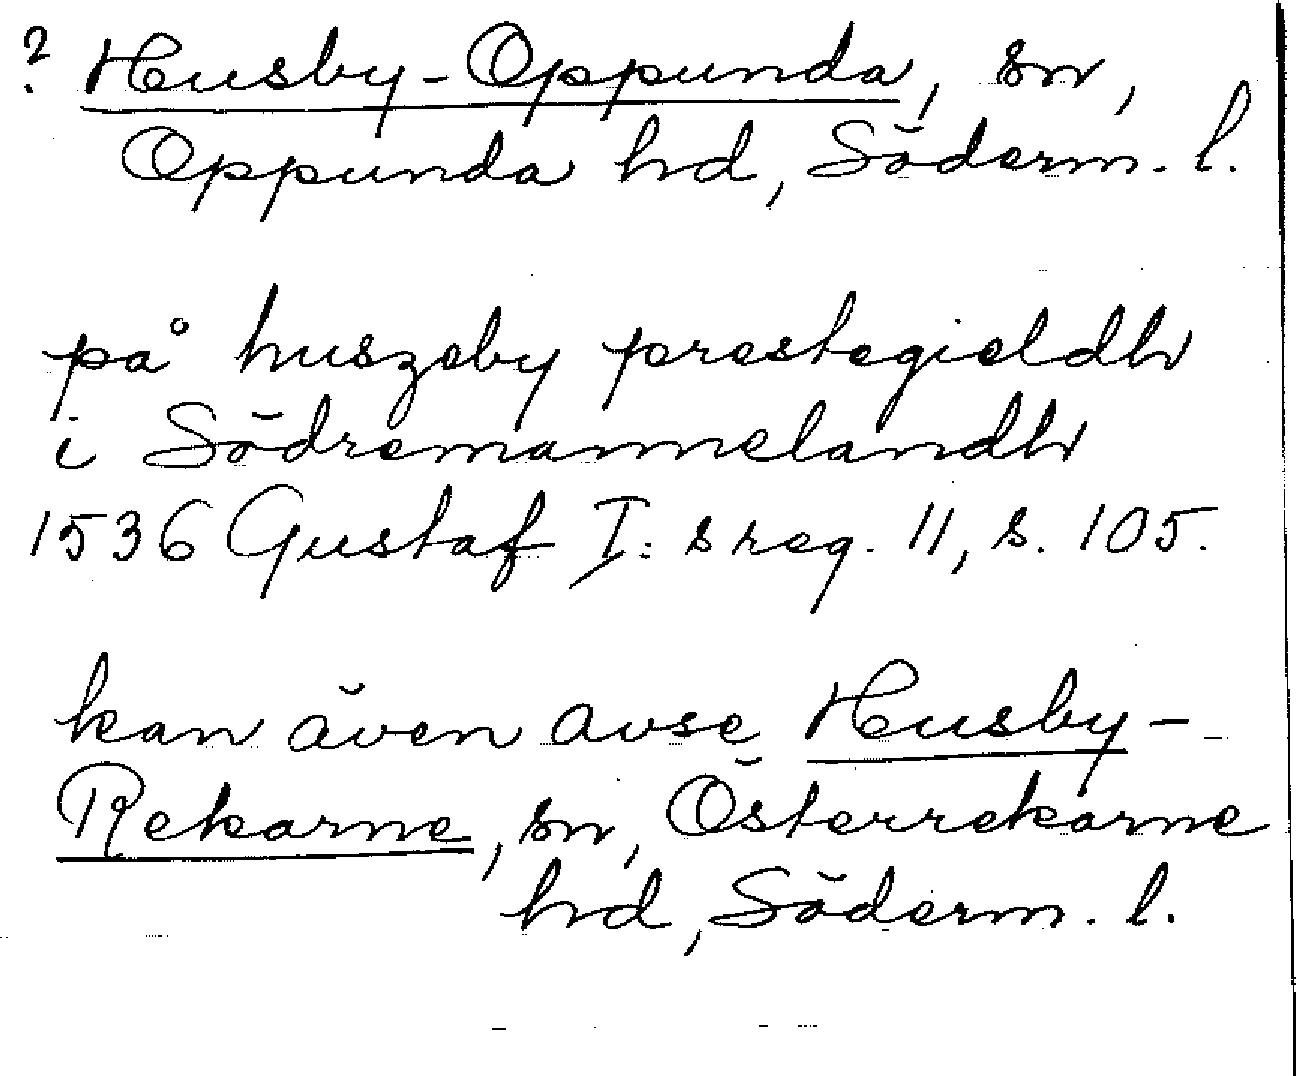 ? Husby-Oppunda, sn,
Oppunda hd, Söderm. l.
på huszeby prestegieldh
i Södremannelandh
1536 Gustaf I:s reg. 11, s. 105.
kan även avse Husby-
Rekarne, sn, Österrekarne
hd, Söderm. l.